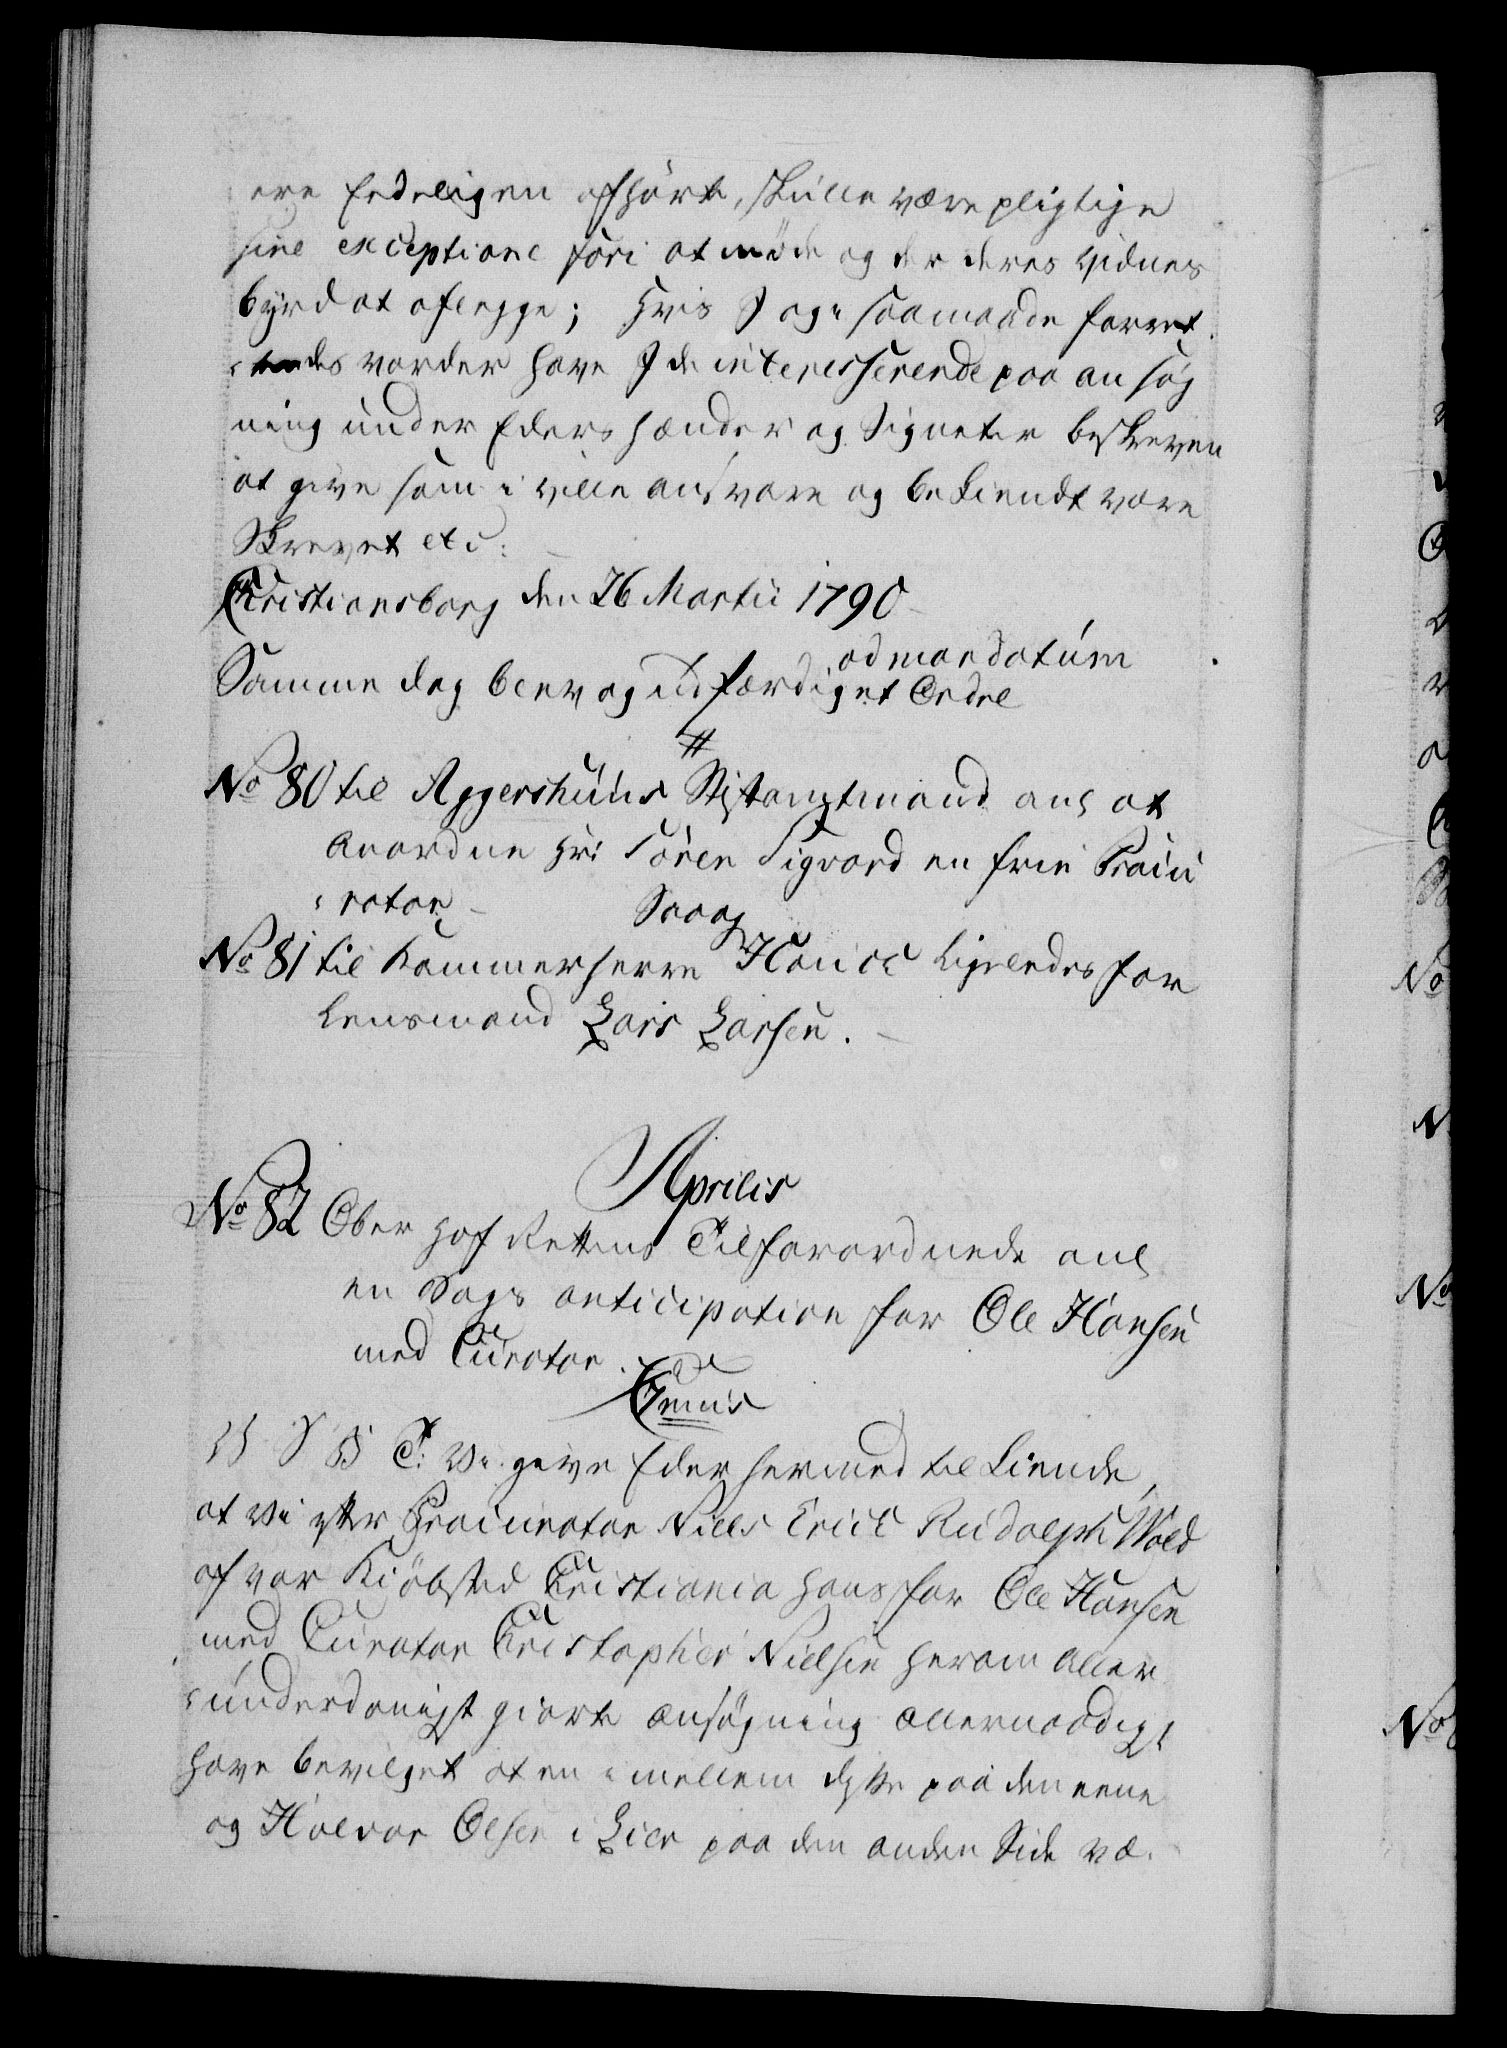 ere Eedeligen afhørte, skulle være pligtige
sine exceptione fori at møde og der deres Vidnes
byrd at aflegge; Hvis I og saamaade forret
tendes vorder have I de interesserende paa ansøg
ning under Eders Hænder og Signeter beskreven
at give som i ville ansvare og bekiendt være
Skrevet etc:
Christiansborg den 26 Martii 1790
ad mandatum
Samme dag blev og udfærdiget Ordre
#
No 80 til Aggershuus Stiftamtmand anl at
Anordne Hr: Søren Sigvard en frie Procu
rator
Saa og
No 81 til Kammerherre Hauch ligeledes for
Lensmand Lars Larsen.
Aprilis
No 82 Ober Hof Rettens Tilforordnede anl
en Sags anticipation for Ole Hansen
med Curator.
Gr. T: Vi give Eder hermed til kiende,
at Vi efter Procurator Niels Erich Rudolph Wold
af vor Kiøbsted Christiania hans for Ole Hansen
med Curator Christopher Nielsen herom aller
underdanigst giorte Ansøgning allernaadigst
have bevilget at en imellem dette paa den eene
og Halvor Olsen i Lier paa den anden Side væ